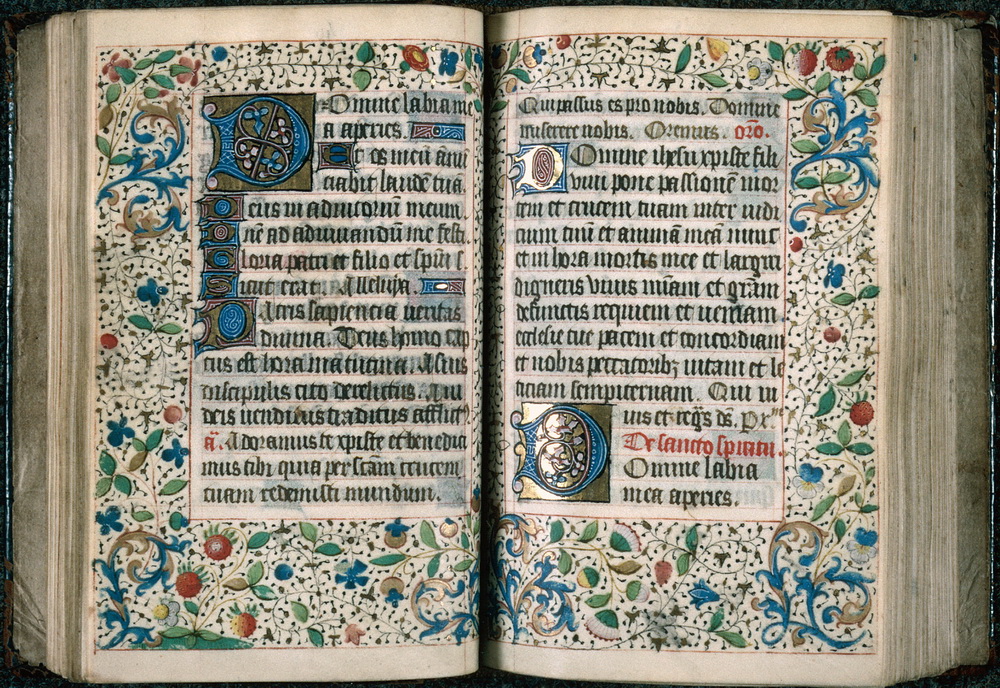 Domine labia me
a aperies.
Et os meū annū
ciabit laudē tuā.
Deus in adiutoriū meum
Dn̄e ad adiuuandū me festi.
Gloria patri et filio et spūi s.
Sicut erat. Alleluya.
Patris sapiencia ueritas
diuina. Deus homo cap
tus est hora matutina. A suis
discipulis cito derelictus. A iu
deis uenditus traditus afflict⁹
a͞. Adoramus te xpiste et benedici
mus tibi quia per sc̄am crucem
tuam redemisti mundum.
Qui passus es pro nobis. Domine
miserere nobis. Oremus. orō.
Domine ihesu xpiste fili
dei uiui pone passionē mor
tem et crucem tuam inter iudi
cium tuū et animā meā nunc
et in hora mortis mee et largiri
digneris viuis mīam et grām
defunctis requiem et ueniam
ecclesie tue pacem et concordiam
et nobis peccatoribȝ uitam et le
ticiam sempiternam. Qui ui
uis et reḡs ds̄. Pr̄
De sancto spiritu.
Domine labia
mea aperies.